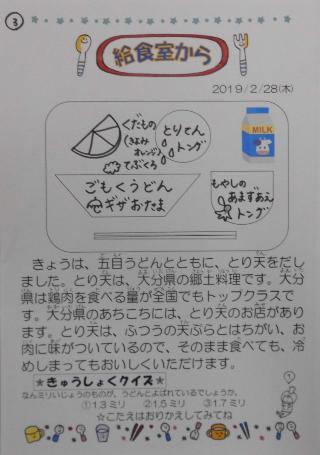 ③
給食室から
2019/2/28(木)
くだもの
(きよみ
オレンジ)
てぶくろ
とりてん
トング
MILK
ごもくうどん
ギザおたま
もやしの
あまずあえ
トング
きょうは、五目うどんとともに、とり天をだし
ました。とり天は、大分県の郷土料理です。大分
県は鶏肉を食べる量が全国でもトップクラスで
す。大分県のあちこちには、とり天のお店があり
ます。とり天は、ふつうの天ぷらとはちがい、お
肉に味がついているので、そのまま食べても、冷
めしまってもおいしくいただけます。
★きゅうしょくクイズ★
なんミリいじょうのものが、うどんとよばれているでしょうか。
①1.3ミリ ②1.5ミリ ③1.7ミリ
☆こたえはおりかえしてみてね